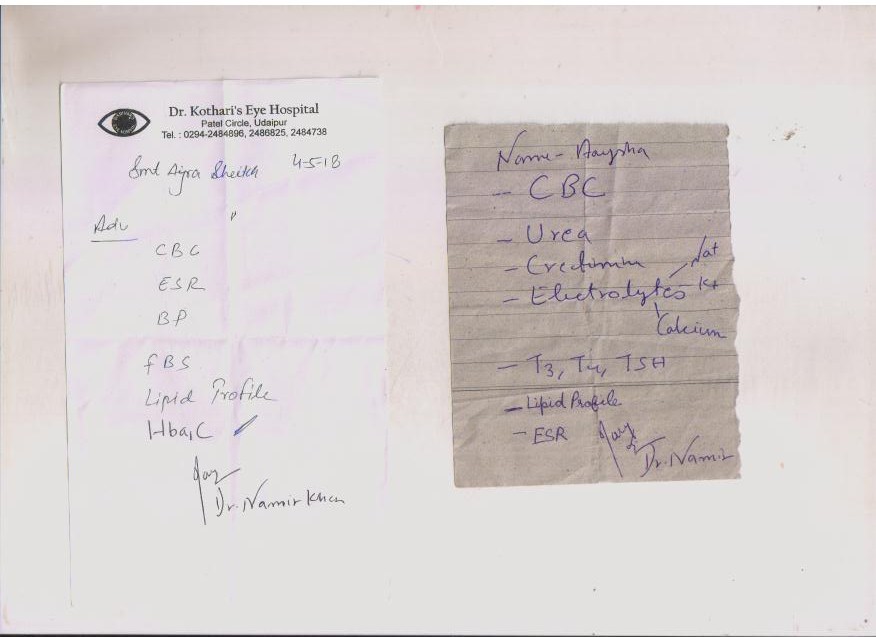 Dr. Kothari's Eye Hospital
Patel Circle, Udaipur
Tel. : 0294-2484896, 2486825, 2484738
Smt Ayra Sheikh 4-5-18
Adv
CBC
ESR
BP
FBS
Lipid Profile
Hba1C
Dr. Namir Khan
Name- Aaysha
- CBC
- Urea
- Creatinine
- Electrolytes
Na+
K+
Calcium
- T3, T4, TSH
- Lipid Profile
- ESR
Dr. Namir